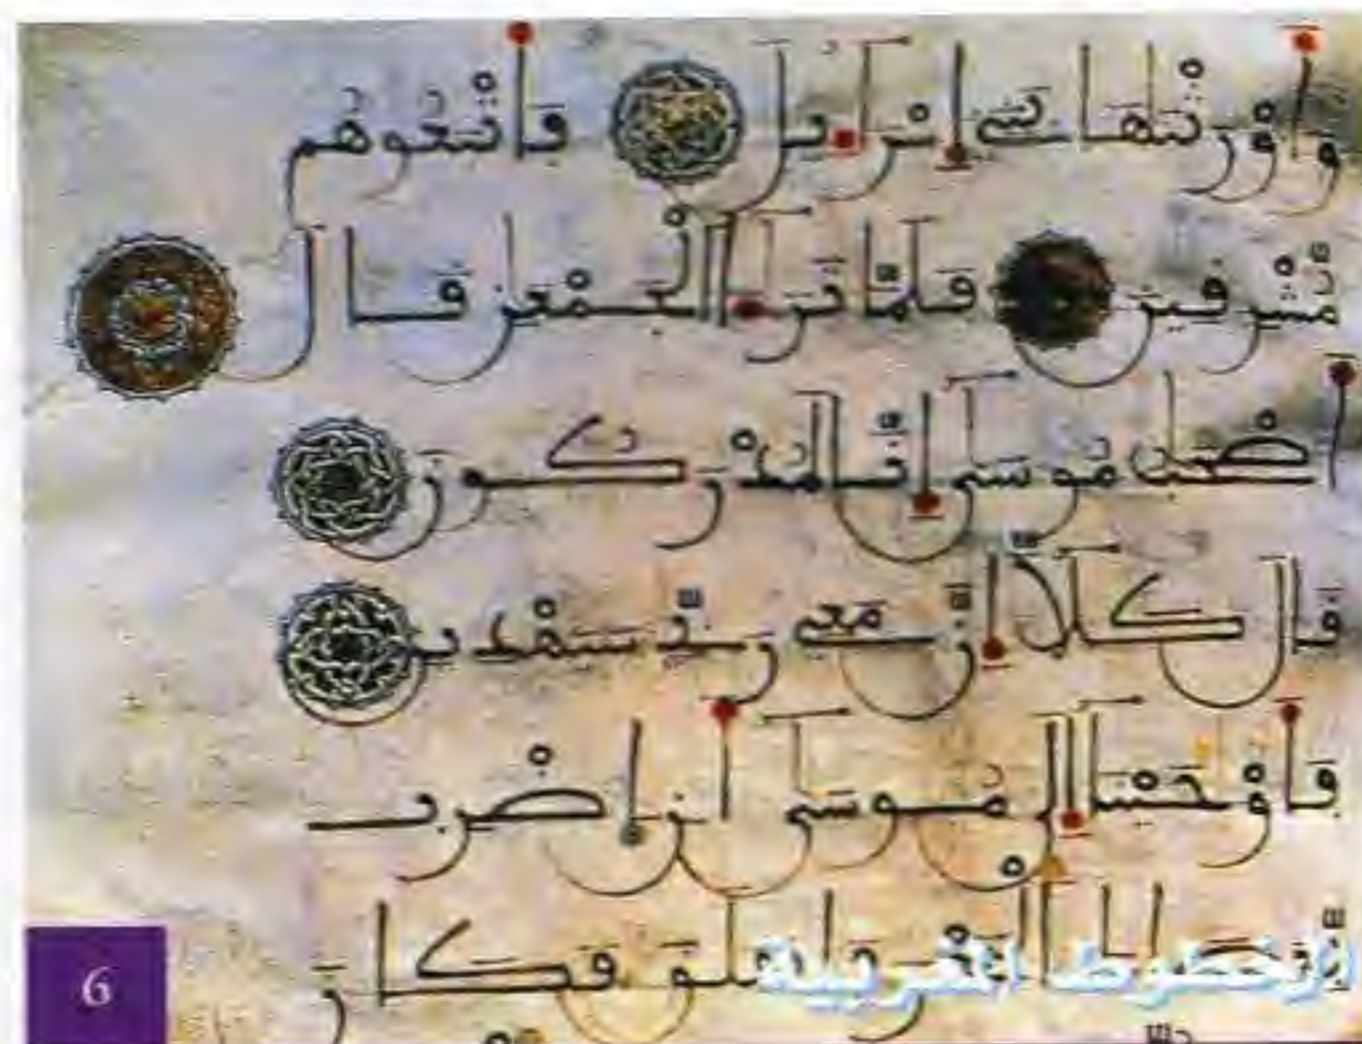 وَأَوْرَثْنَٰهَا بَنِي إِسْرَٰٓءِيلَ فَأَتْبَعُوهُم
مُّشْرِقِينَ فَلَمَّا تَرَٰٓءَا الْجَمْعَٰنِ قَالَ
أَصْحَٰبُ مُوسَىٰ إِنَّا لَمُدْرَكُونَ
قَالَ كَلَّا إِنَّ مَعِي رَبِّي سَيَهْدِينِ
فَأَوْحَيْنَا إِلَىٰ مُوسَىٰ أَنِ اضْرِب
بِّعَصَاكَ الْبَحْرَ فَانفَلَقَ فَكَانَ
الخطوط المغربية
6